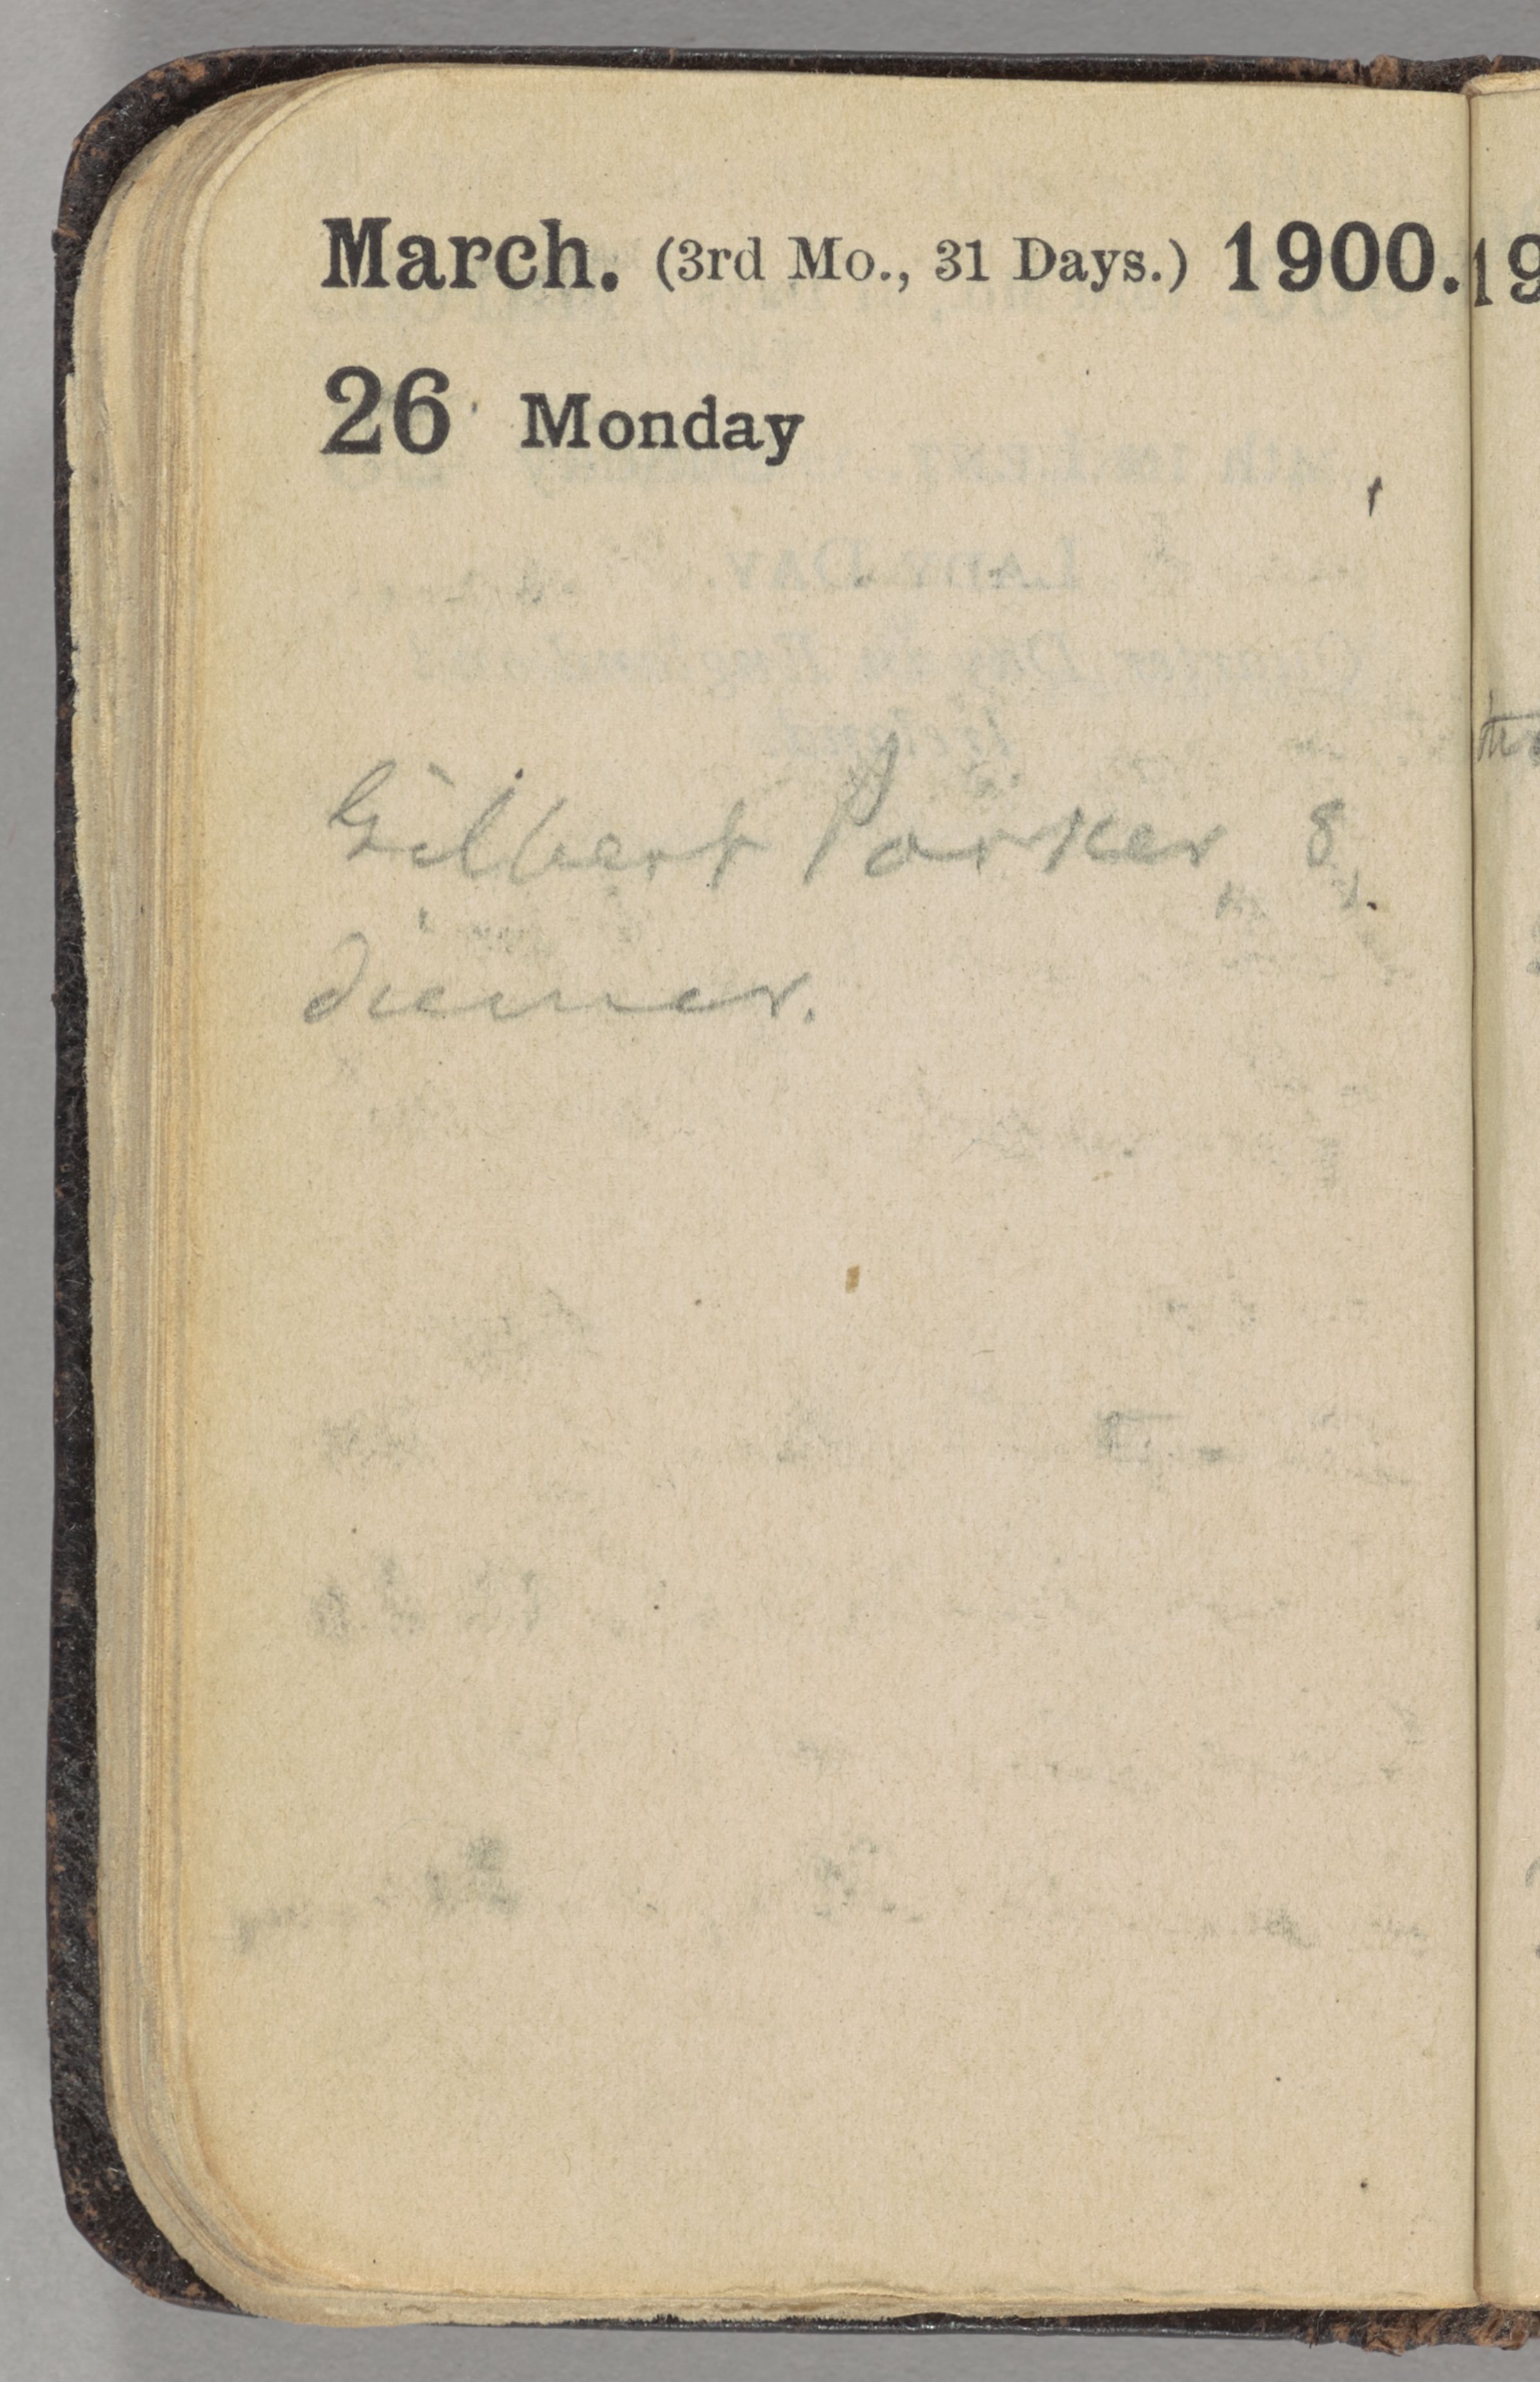 March. (3rd Mo., 31 Days.) 1900.
26 Monday
Gilbert Parker 8
dinner.